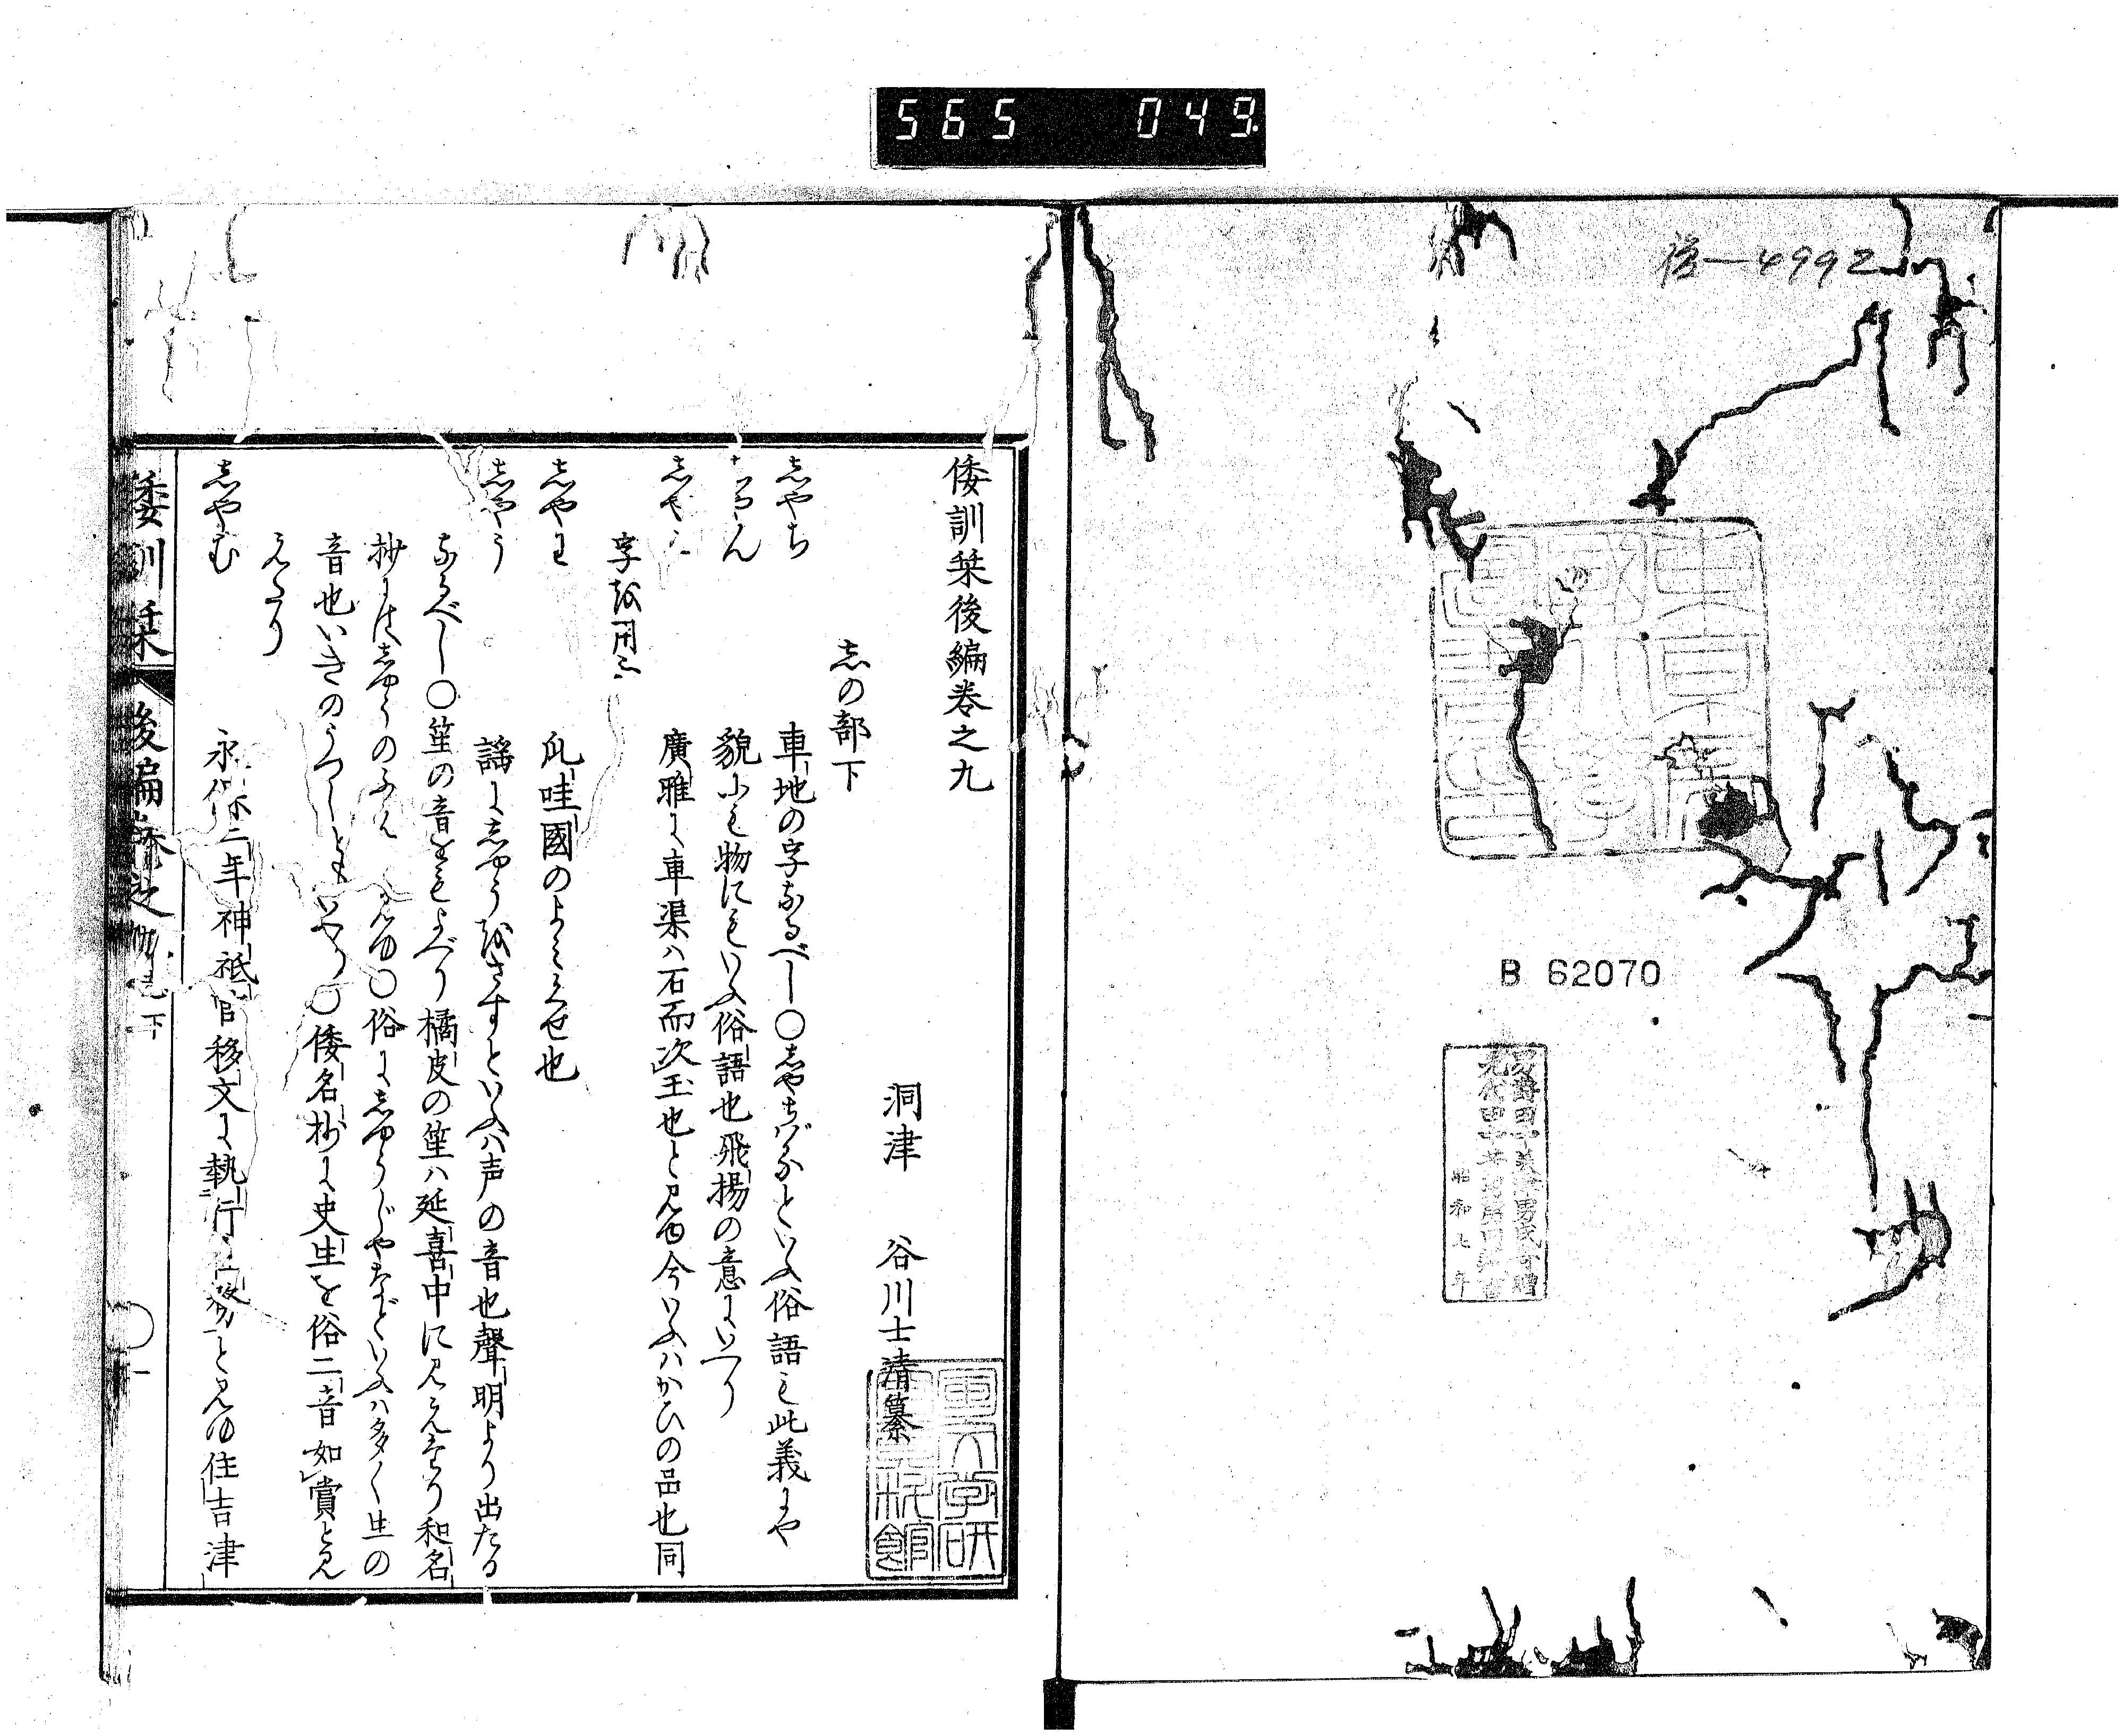 565 049
後-4992
B 62070
昭和七年
倭訓栞後編巻之九
洞津 谷川士清纂
志の部下
志やち 車地の字なるべし○志やちばるといふ俗語も此義にや
貌にも物にもいふ俗語也飛揚の意にいへり
廣雅に車渠ハ石而次玉也と見ゆ今いふハかひの品也同
字を用ふ
志やわ 爪哇國のよこなはせ也
志やう 謡に志やうをさすといふハ声の音也聲明より出たる
なるべし○笙の音をもよべり橘皮の笙ハ延喜中に見えたり和名
抄に志やうのふえ 見ゆ○俗に志やうじやなどいふハ多く生の
音也いきのうつしともいへり○倭名抄に史生を俗二音如賞と見
えたり
志やむ 永保二年神祇官移文に執行 務と見ゆ住吉津
倭訓栞 後編巻之 下